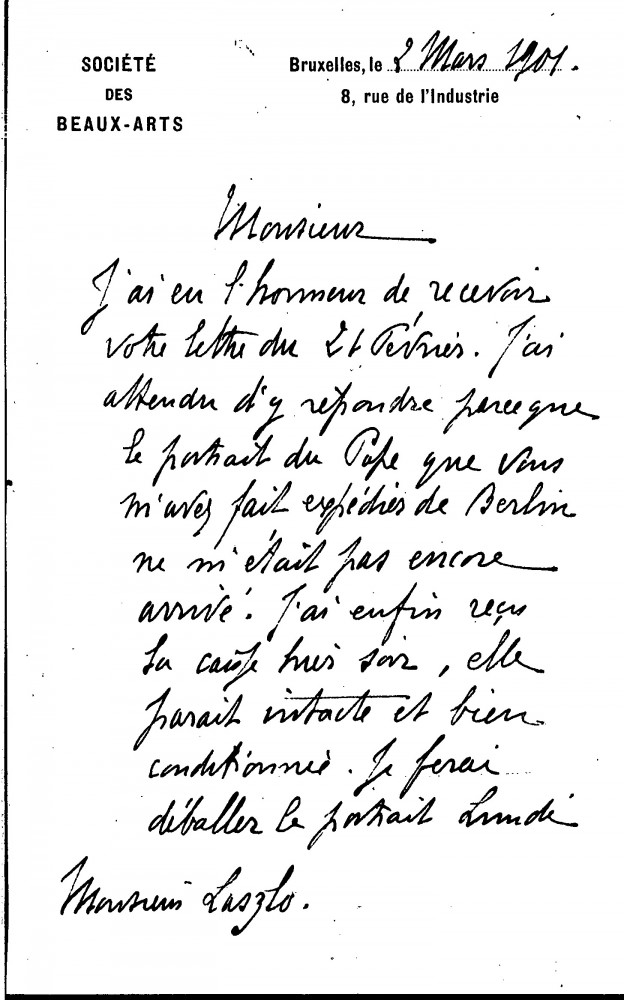 SOCIÉTÉ
DES
BEAUX-ARTS
Bruxelles, le 2 Mars 1901.
8, rue de l'Industrie
Monsieur
J'ai eu l'honneur de recevoir
votre lettre du 26 Février. J'ai
attendu d'y répondre parceque
le portrait du Pape que vous
m'avez fait expédiés de Berlin
ne m'était pas encore
arrivé. J'ai enfin reçu
la caisse hier soir, elle
parait intacte et bien
conditionnée. Je ferai
déballer le portrait Lundi
Monsieur Laszlo.